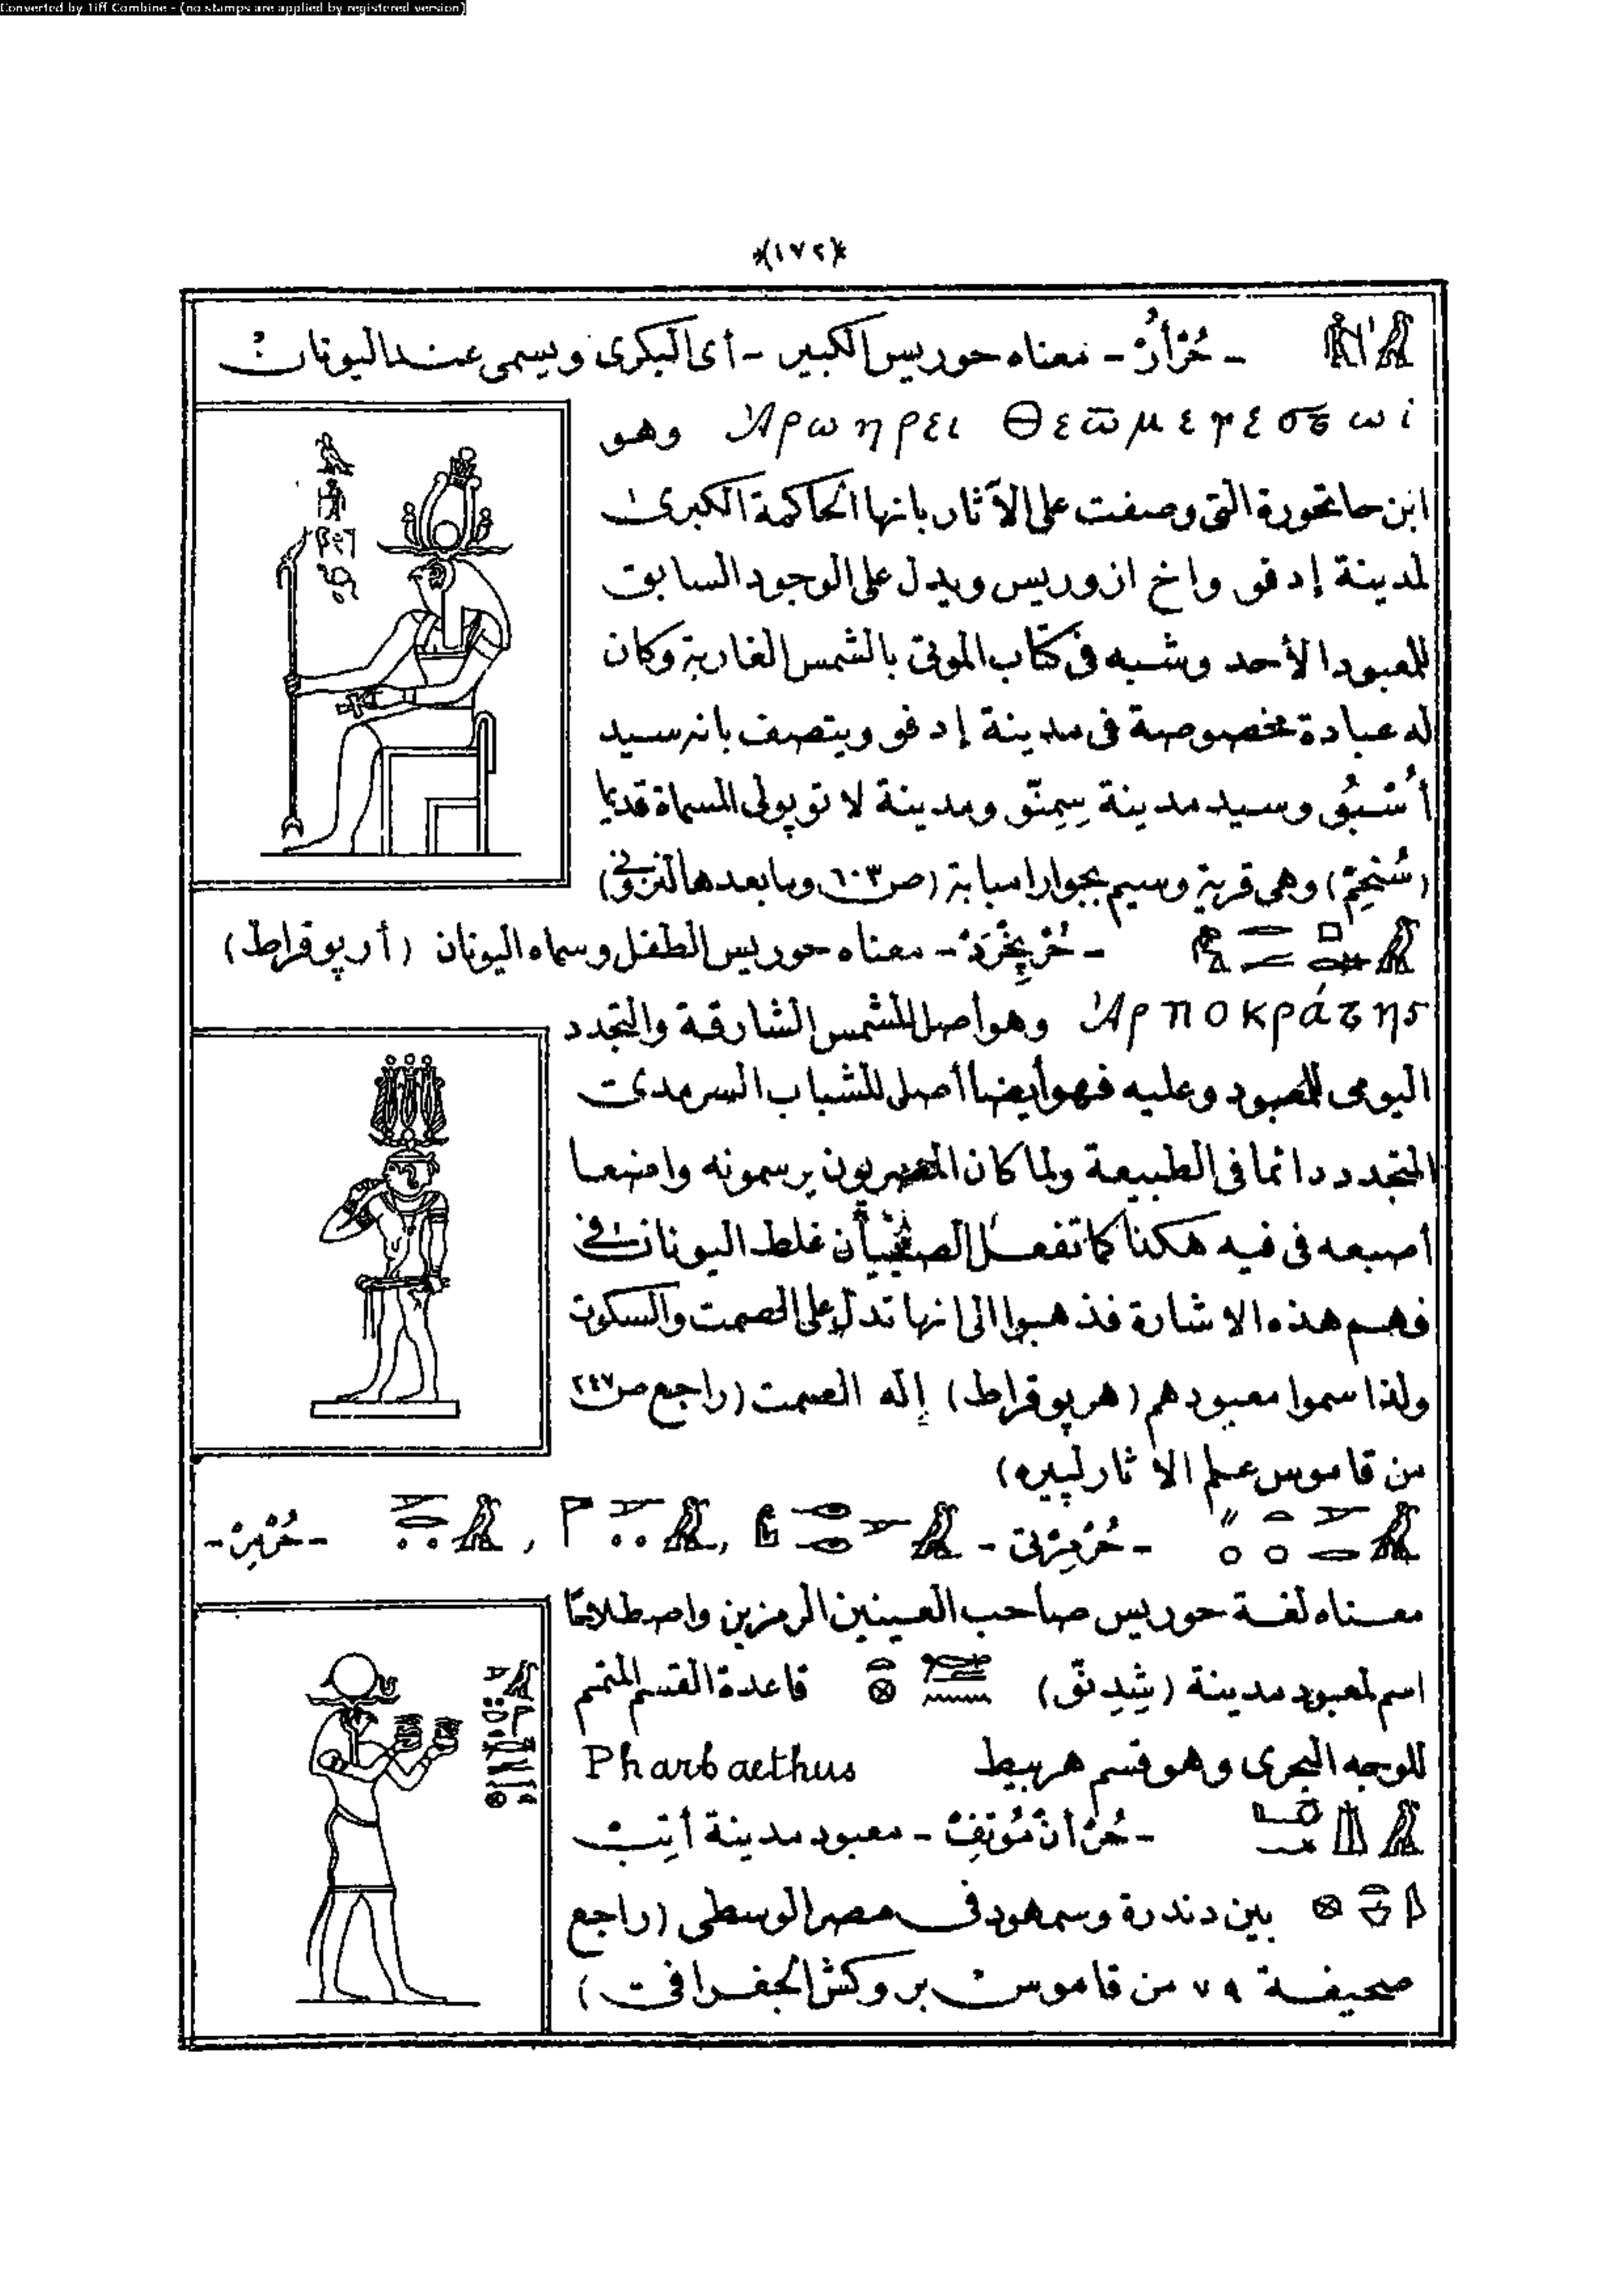 Converted by Tiff Combine - (no stamps are applied by registered version)
﴿١٧٢﴾
- حُرْأُرْ - معناه حوريس الكبير - أى البكرى ويسمى عند اليونان
Ἀρωηρει وهو
ابن حاتحورة التى وصفت على الآثار بانها الحاكمة الكبرى
لمدينة إدفو واخ ازوريس ويدل على الوجود السابق
للمعبود الأحد وشبه فى كتاب الموتى بالشمس الغاربة وكان
له عبادة مخصوصة فى مدينة إدفو ويتصف بانه سيد
أُسْبُو وسيد مدينة سِمِنّو ومدينة لاتوپولى المسماة قديما
(سُنْخِمْ) وهى قرية وسيم بجوار امبابة (ص ٦٠٣ وما بعدها لنزونى)
- حُرْپِخْرَدْ - معناه حوريس الطفل وسماه اليونان (أرپوقراط)
Ἁρποκράτης وهو اصل للشمس الشارقة والتجدد
اليومى للمعبود وعليه فهو أيضا أصلى للشباب السرمدى
المتجدد دائما فى الطبيعة ولما كان المصريون يرسمونه واضعا
أصبعه فى فيه هكذا كما تفعل الصبيان غلط اليونان فى
فهم هذه الاشارة فذهبوا الى انها تدل على الصمت والسكون
ولذا سموا معبودهم (هرپوقراط) إله الصمت (راجع ص ٢٤٧
من قاموس علم الآثار لپيره)
- حُرْمِرْتى - , , - حُرْمِرْ -
معناه لغة حوريس صاحب العينين الرمزين واصطلاحًا
اسم لمعبود مدينة (شِدِنّو) قاعدة القسم المتمم
للوجه البحرى وهو قسم هربيط Pharbaethus
- حُرْأنْ مُوتِفْ - معبود مدينة أبت
بين دندرة وسمهود فى مصر الوسطى (راجع
صحيفة ٧٩ من قاموس بروكش الجغرافى)